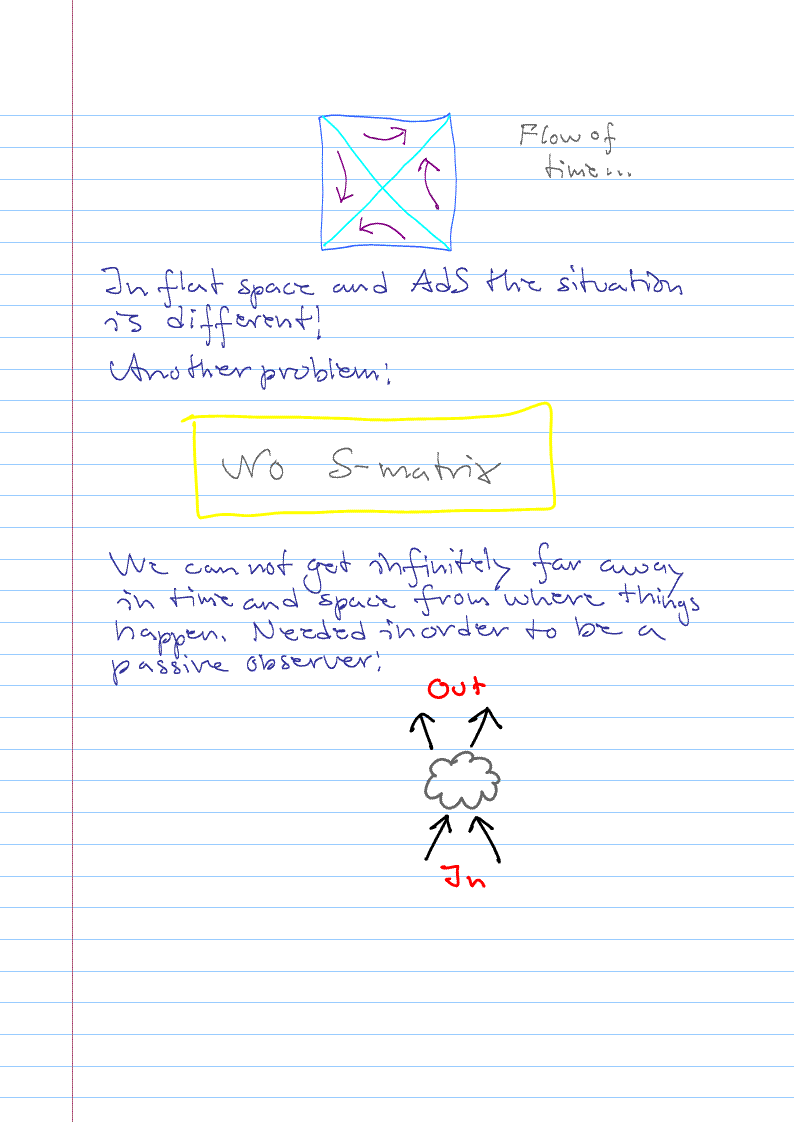 Flow of
time...
In flat space and AdS the situation
is different!
Another problem:
No S-matrix
We can not get infinitely far away
in time and space from where things
happen. Needed inorder to be a
passive observer!
Out
In